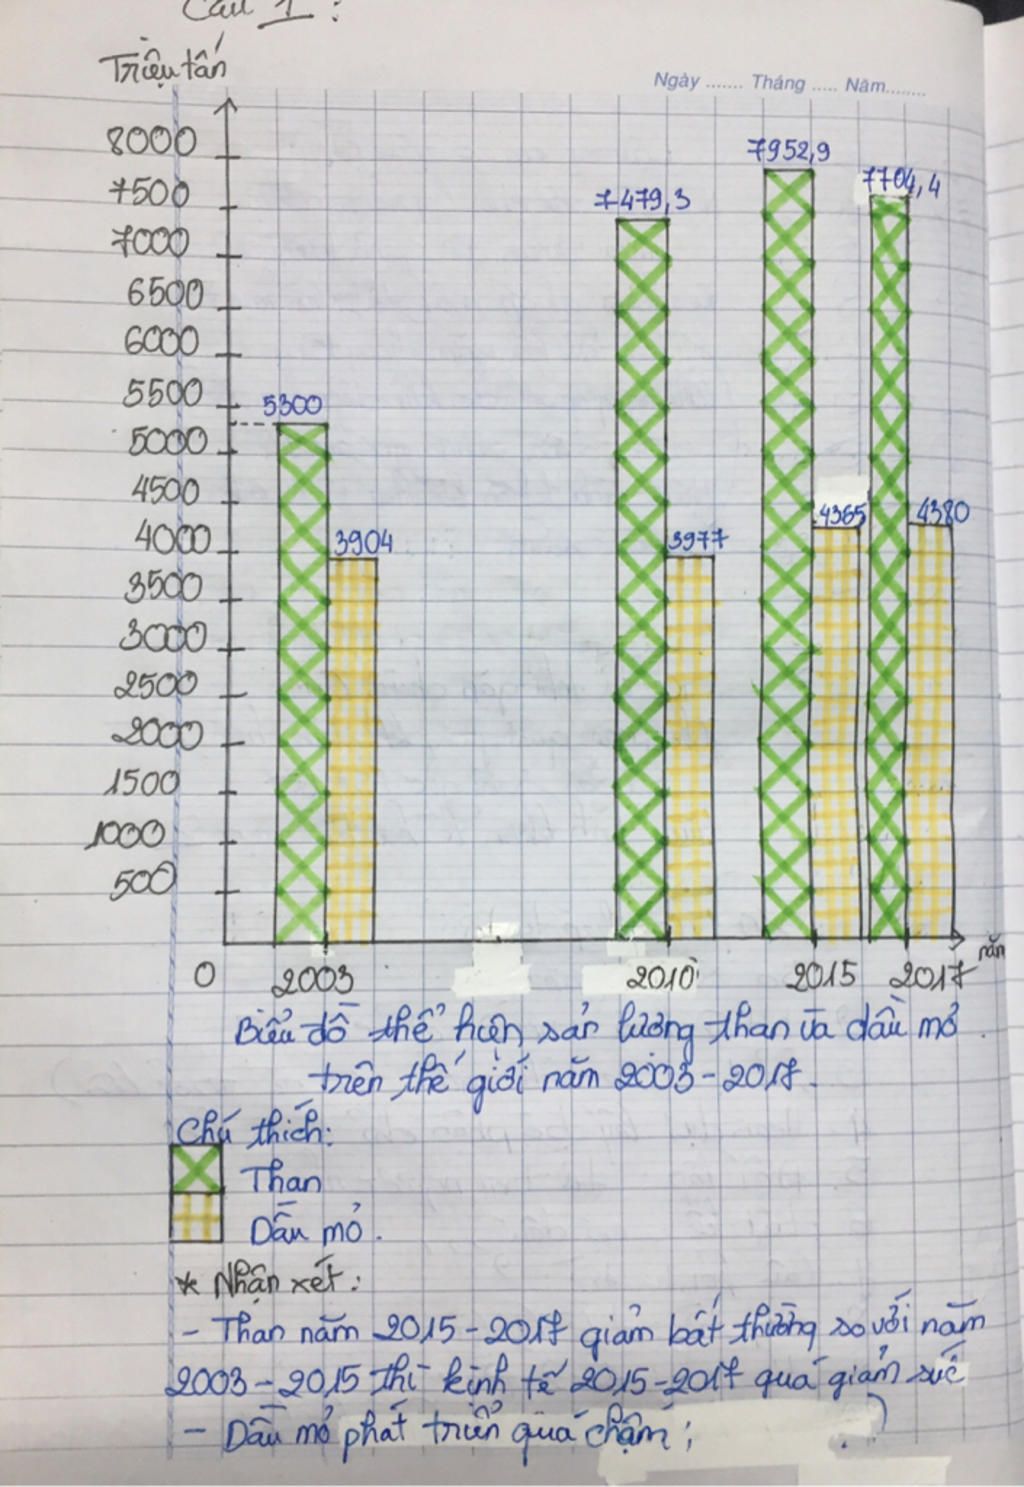 Câu 1:
Triệu tấn
Ngày ....... Tháng ..... Năm........
8000
7500
7000
6500
6000
5500
5000
4500
4000
3500
3000
2500
2000
1500
1000
500
0
5300
3904
7479,3
3977
7952,9
4365
7704,4
4380
2003
2010
2015
2017
năm
Biểu đồ thể hiện sản lượng than và dầu mỏ
trên thế giới năm 2003-2017.
Chú thích:
Than
Dầu mỏ.
* Nhận xét:
- Than năm 2015-2017 giảm bất thường so với năm
2003-2015 thì kinh tế 2015-2017 quá giảm sức
- Dầu mỏ phát triển quá chậm;